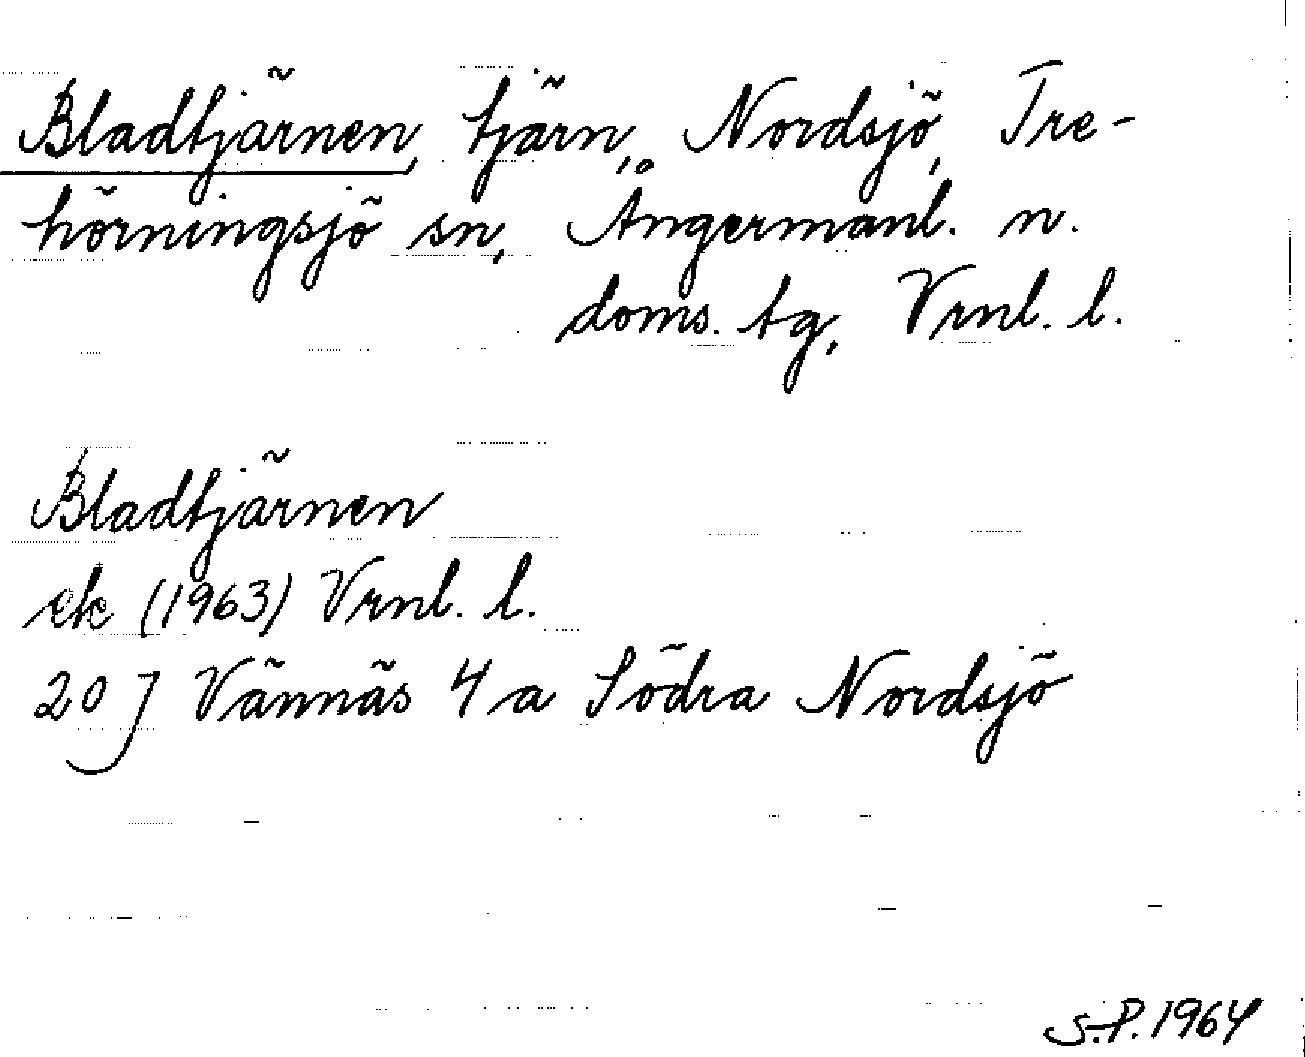 Bladtjärnen, tjärn, Nordsjö, Tre-
hörningsjö sn, Ångermanl. n.
doms. tg, Vrnl. l.
Bladtjärnen
ek (1963) Vrnl. l.
20 J Vännäs 4 a Södra Nordsjö
S.P. 1964